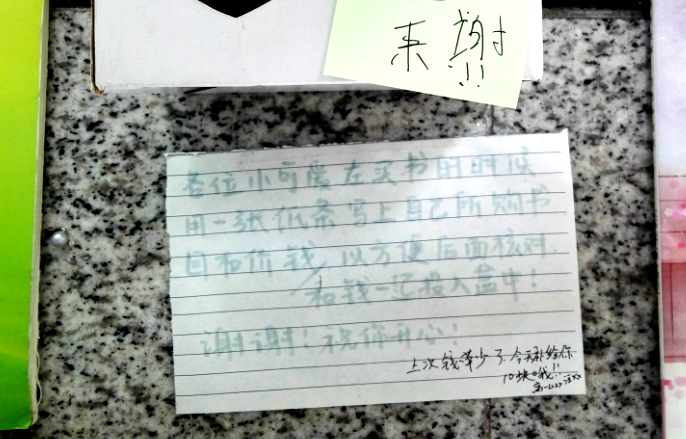 来 谢!!
各位小可爱在买书的时候
用一张纸条写上自己所购书
目和价钱,以方便后面核对.
和钱一起投入盒中!
谢谢!祝你开心!
上次钱拿少了.今天补给你
10块哦!!